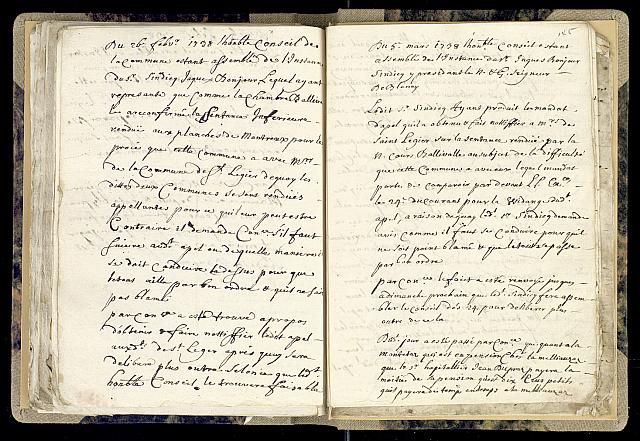 Du 26. febvr. 1738 lhonble Conseil de
la Commune estant assemblé de l'Instance
du Sr. Sindicq Jaques Bonjour Lequel ayant
representé que Comme la Chambre Balliv
a reconfirmé la Sentance Inferieure
rendüe aux planches de Montreux pour le
procès que cette Commune a avec Mrs
de la Commune de St. Legier dequoy les
dittes deux Communes se sont rendües
appellantes pour ce qui leur peut estre
Contraire Il demande Con S'il faut
suivre apel ou de quelle maniere il
se doit Conduire la dessus pour que
le tout aille par bon ordre & qu'il ne soit
pas blamé
par con a esté trouvé a propos
d'obtenir & faire nottiffier ledit apel
aux de St Leger après quoy sera
deliberé plus outre Selon ce que ledt
honble Conseil le trouvera faisable
125
Du 5e. mars 1738 lhonble Conseil estant
assemblé de l'Instance du Sr. Jaques Bonjour
Sindicq y presidant le Seigneur
De Blonay
Ledit Sr. Sindicq Ayant produit le mandat
d'apel qu'il a obtenu & fait nottiffier a Mrs de
Saint Legier sur la sentance rendüe par la
Cour Ballivalle au subjet de la difficulté
que cette Commune a avec eux lequel mandat
porte de comparoir par devant
le 22e du courant pour le Vidange dud
apel, a raison dequoy led. Sr. Sindicq demande
avis comme il faut se Conduire pour qu'il
ne soit point blamé & que le tout se passe
par bon ordre
par con le fait a esté renvoyé jusques
a dimanche prochain que led. Sindicq fera assem
bler le Conseil des 24. pour deliberer plus
outre de cela
Du d. jour a esté passé par con que quant a la
qui est en pension chez la meilleuraz
que le Sr. hospitallier Jean Dupret payera la
moitié de la pension qu'est dix Escus petits
qu'il payera de temps en temps a la meilleuraz